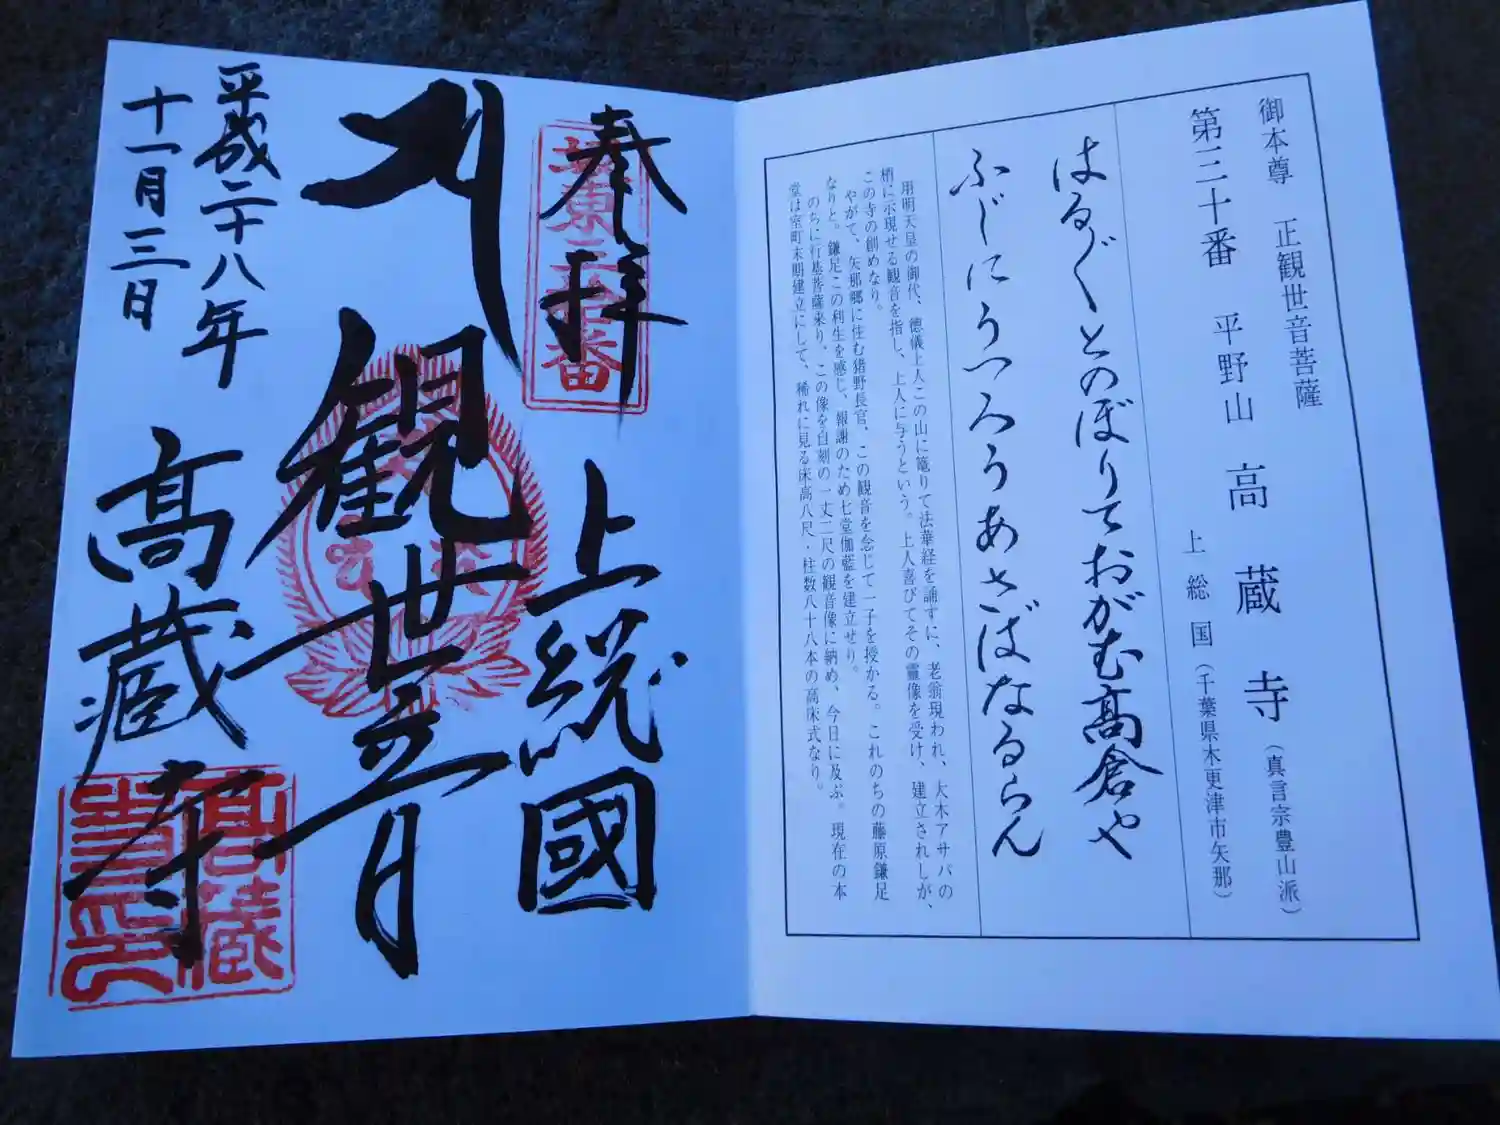 御本尊 正観世音菩薩
第三十番 平野山 高蔵寺(真言宗豊山派)
上総国(千葉県木更津市矢那)
はるぐとのぼりておがむ高倉や
ふじにうつろうあさばなるらん
用明天皇の御代、徳儀上人この山に篭りて法華経を誦すに、老翁現われ、大木アサバの
梢に示現せる観音を指し、上人に与うという。上人喜びてその霊像を受け、建立されしが、
この寺の創めなり。
やがて、矢那郷に住む猪野長官、この観音を念じて一子を授かる。これのちの藤原鎌足
なりと。鎌足この利生を感じ、報謝のため七堂伽藍を建立せり。
のちに行基菩薩来り、この像を自刻の一丈二尺の観音像に納め、今日に及ぶ。現在の本
堂は室町末期建立にして、稀れに見る床高八尺・柱数八十八本の高床式なり。
奉拝
坂東三十番
上総國
観世音
平成二十八年
十一月三日
高蔵寺